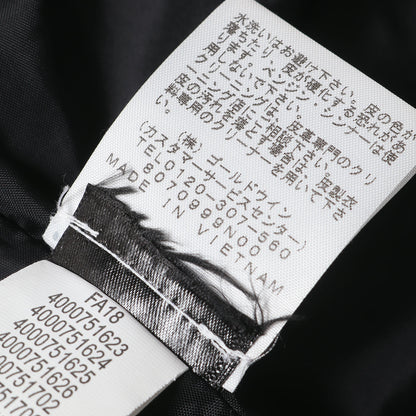 水洗いはお避け下さい。皮の色が
落ちたり、皮が硬化する恐れがあ
ります。ベンジン・シンナーは使
用しないで下さい。
クリーニングは、皮革専門のクリ
ーニング店に相談下さい。
皮の汚れを落とす場合は、皮製衣
料専用のクリーナーを用いて下
(株)ゴールドウイン
(カスタマーサービスセンター)
TEL0120-307-560
8070999N00
MADE IN VIETNAM
FA18
4000751623
4000751624
4000751625
4000751626
4000751702